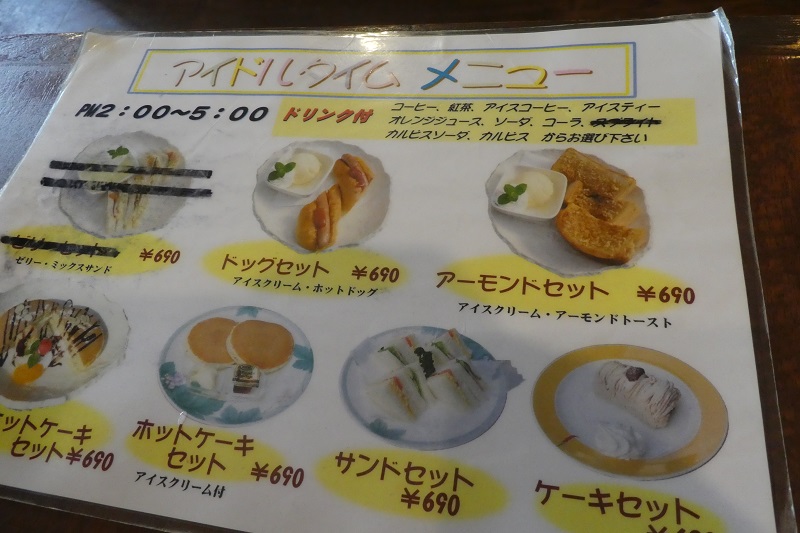 アイドルタイム メニュー
PM2:00〜5:00
ドリンク付
コーヒー、紅茶、アイスコーヒー、アイスティー
オレンジジュース、ソーダ、コーラ、スプライト
カルピスソーダ、カルピス からお選び下さい
ゼリーセット ¥690
ゼリー・ミックスサンド
ドッグセット ¥690
アイスクリーム・ホットドッグ
アーモンドセット ¥690
アイスクリーム・アーモンドトースト
ットケーキ
セット¥690
ホットケーキ
セット ¥690
アイスクリーム付
サンドセット
¥690
ケーキセット